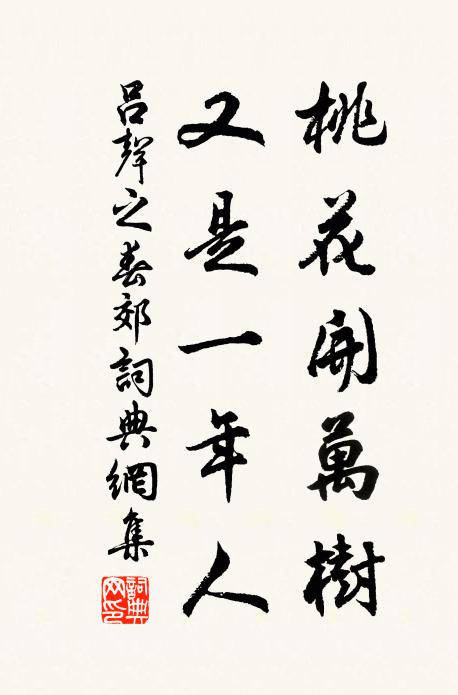 桃花開萬樹
又是一年人
呂聲之春郊詞典網集
詞典網印